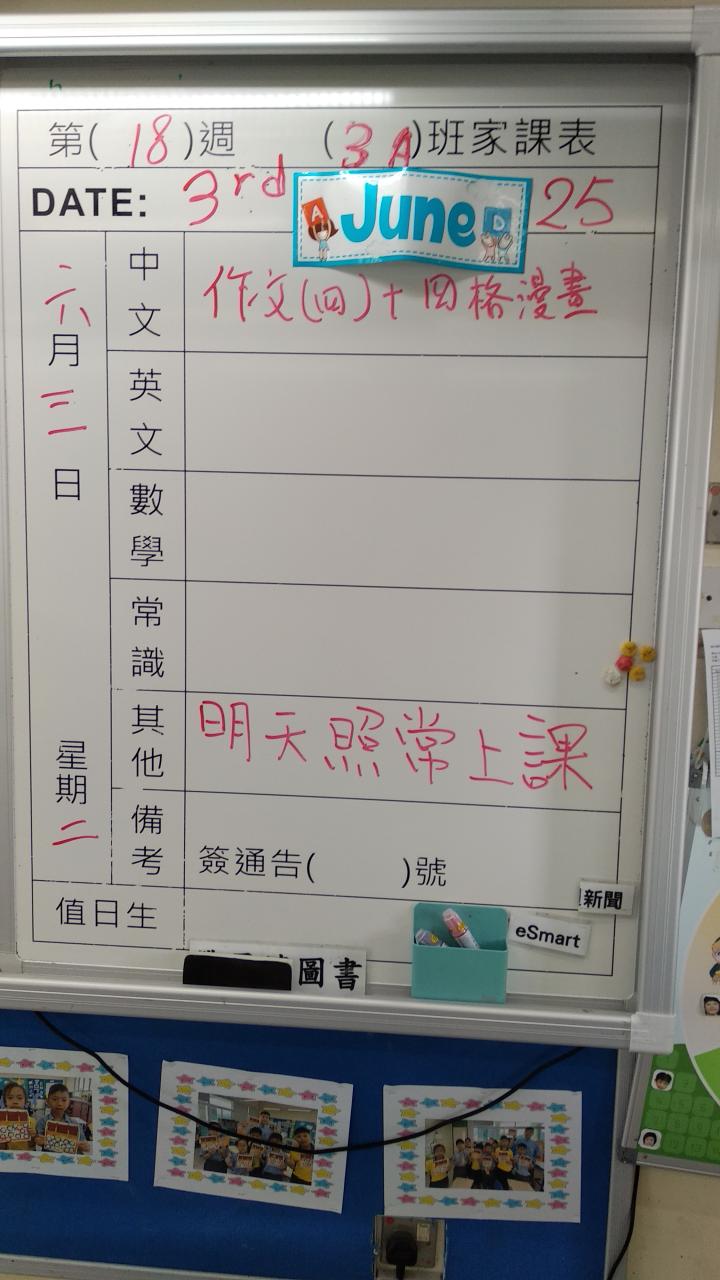 第( 18 )週 ( 3A )班家課表
DATE: 3rd June 25
六月三日
星期二
中文 作文(四)+四格漫畫
英文
數學
常識
其他 明天照常上課
備考 簽通告( )號
值日生
新聞
eSmart
圖書